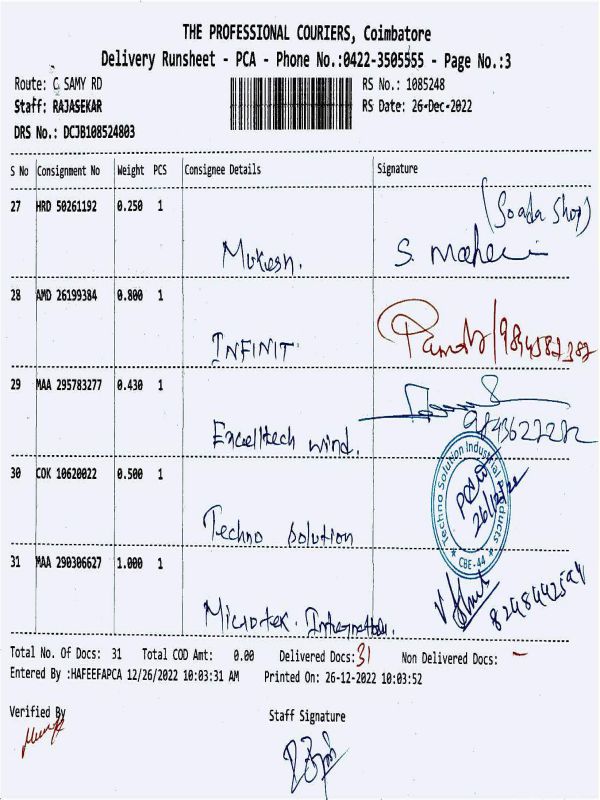 THE PROFESSIONAL COURIERS, Coimbatore
Delivery Runsheet - PCA - Phone No.:0422-3505555 - Page No.:3
Route: C SAMY RD
RS No.: 1085248
Staff: RAJASEKAR
RS Date: 26-Dec-2022
DRS No.: DCJB108524803
S No Consignment No Weight PCS Consignee Details Signature
27 HRD 50261192 0.250 1
Mukesh.
28 AMD 26199384 0.800 1
INFINIT
29 MAA 295783277 0.430 1
Excelltech wind.
30 COK 10620022 0.500 1
Techno Solution Industrial Products
CBE-44
26/12/22
Techno Solution
31 MAA 290306627 1.000 1
8248442594
Total No. Of Docs: 31 Total COD Amt: 0.00 Delivered Docs: 31 Non Delivered Docs: -
Entered By :HAFEEFAPCA 12/26/2022 10:03:31 AM Printed On: 26-12-2022 10:03:52
Verified By
Staff Signature